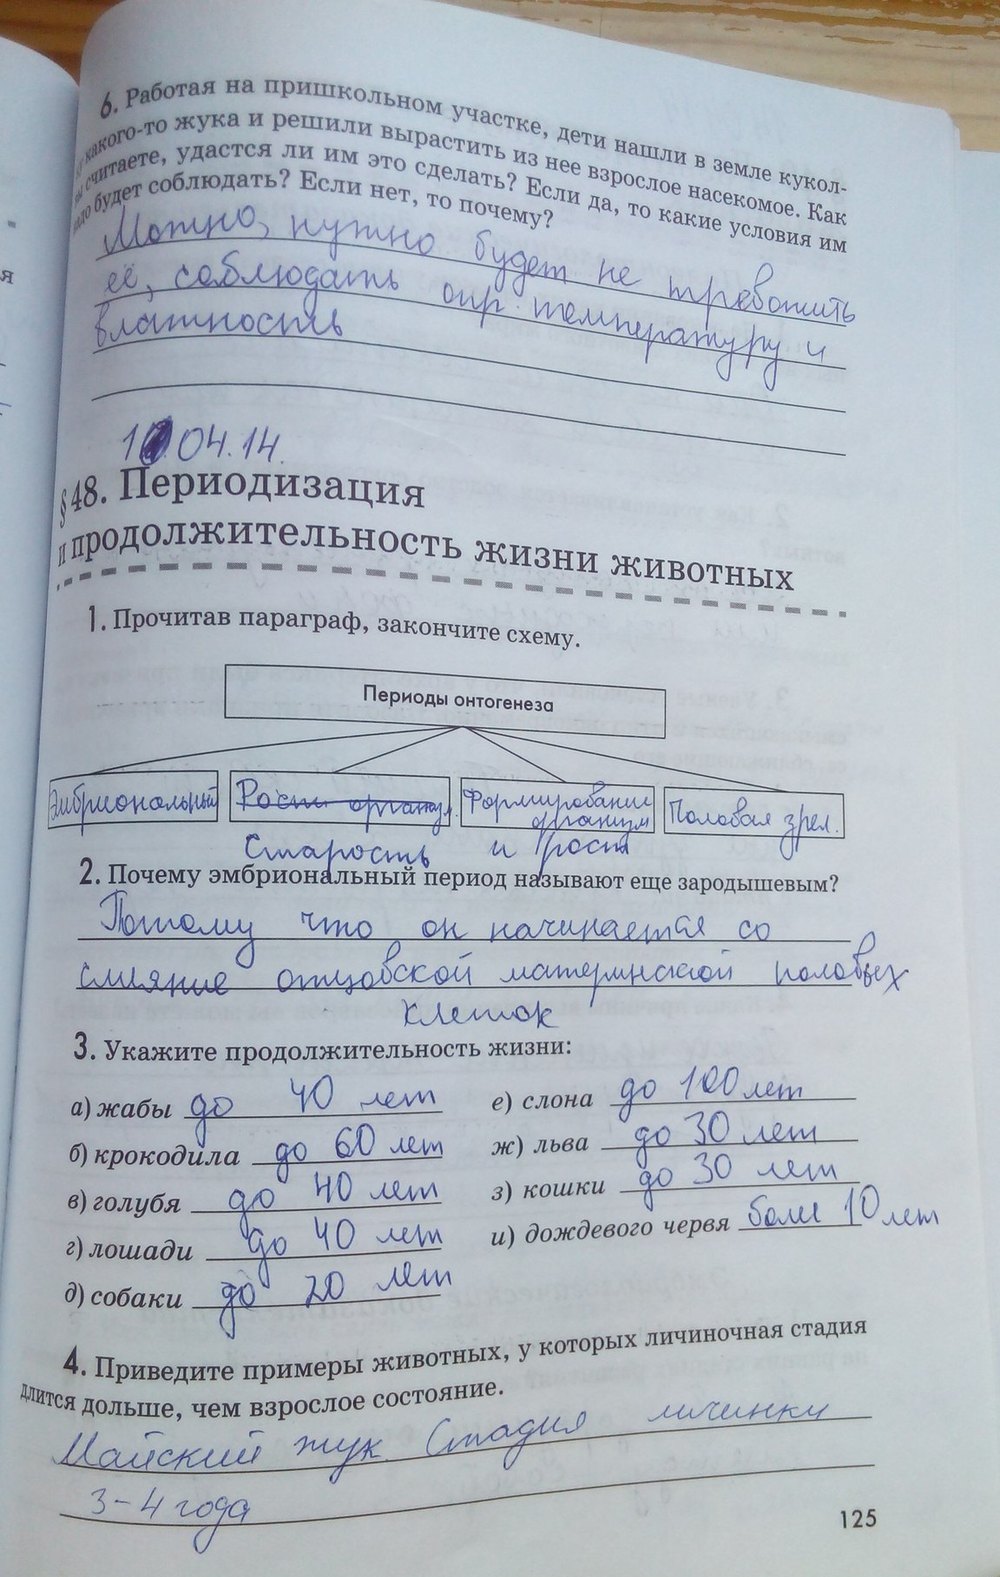 6. Работая на пришкольном участке, дети нашли в земле кукол-
какого-то жука и решили вырастить из нее взрослое насекомое. Как
вы считаете, удастся ли им это сделать? Если да, то какие условия им
надо будет соблюдать? Если нет, то почему?
Можно, нужно будет не тревожить
её, соблюдать опр. температуру и
влажность
04.14.
§ 48. Периодизация
и продолжительность жизни животных
1. Прочитав параграф, закончите схему.
Периоды онтогенеза
Эмбриональный Рост организм. Формирование организм Половая зрел.
Старость и рост
2. Почему эмбриональный период называют еще зародышевым?
Потому что он начинается со
слияние отцовской материнской половых
клеток
3. Укажите продолжительность жизни:
а) жабы до 40 лет
б) крокодила до 60 лет
в) голубя до 40 лет
г) лошади до 40 лет
д) собаки до 20 лет
е) слона до 100 лет
ж) льва до 30 лет
з) кошки до 30 лет
и) дождевого червя боле 10 лет
4. Приведите примеры животных, у которых личиночная стадия
длится дольше, чем взрослое состояние.
Майский жук Стадия личинки
3-4 года
125